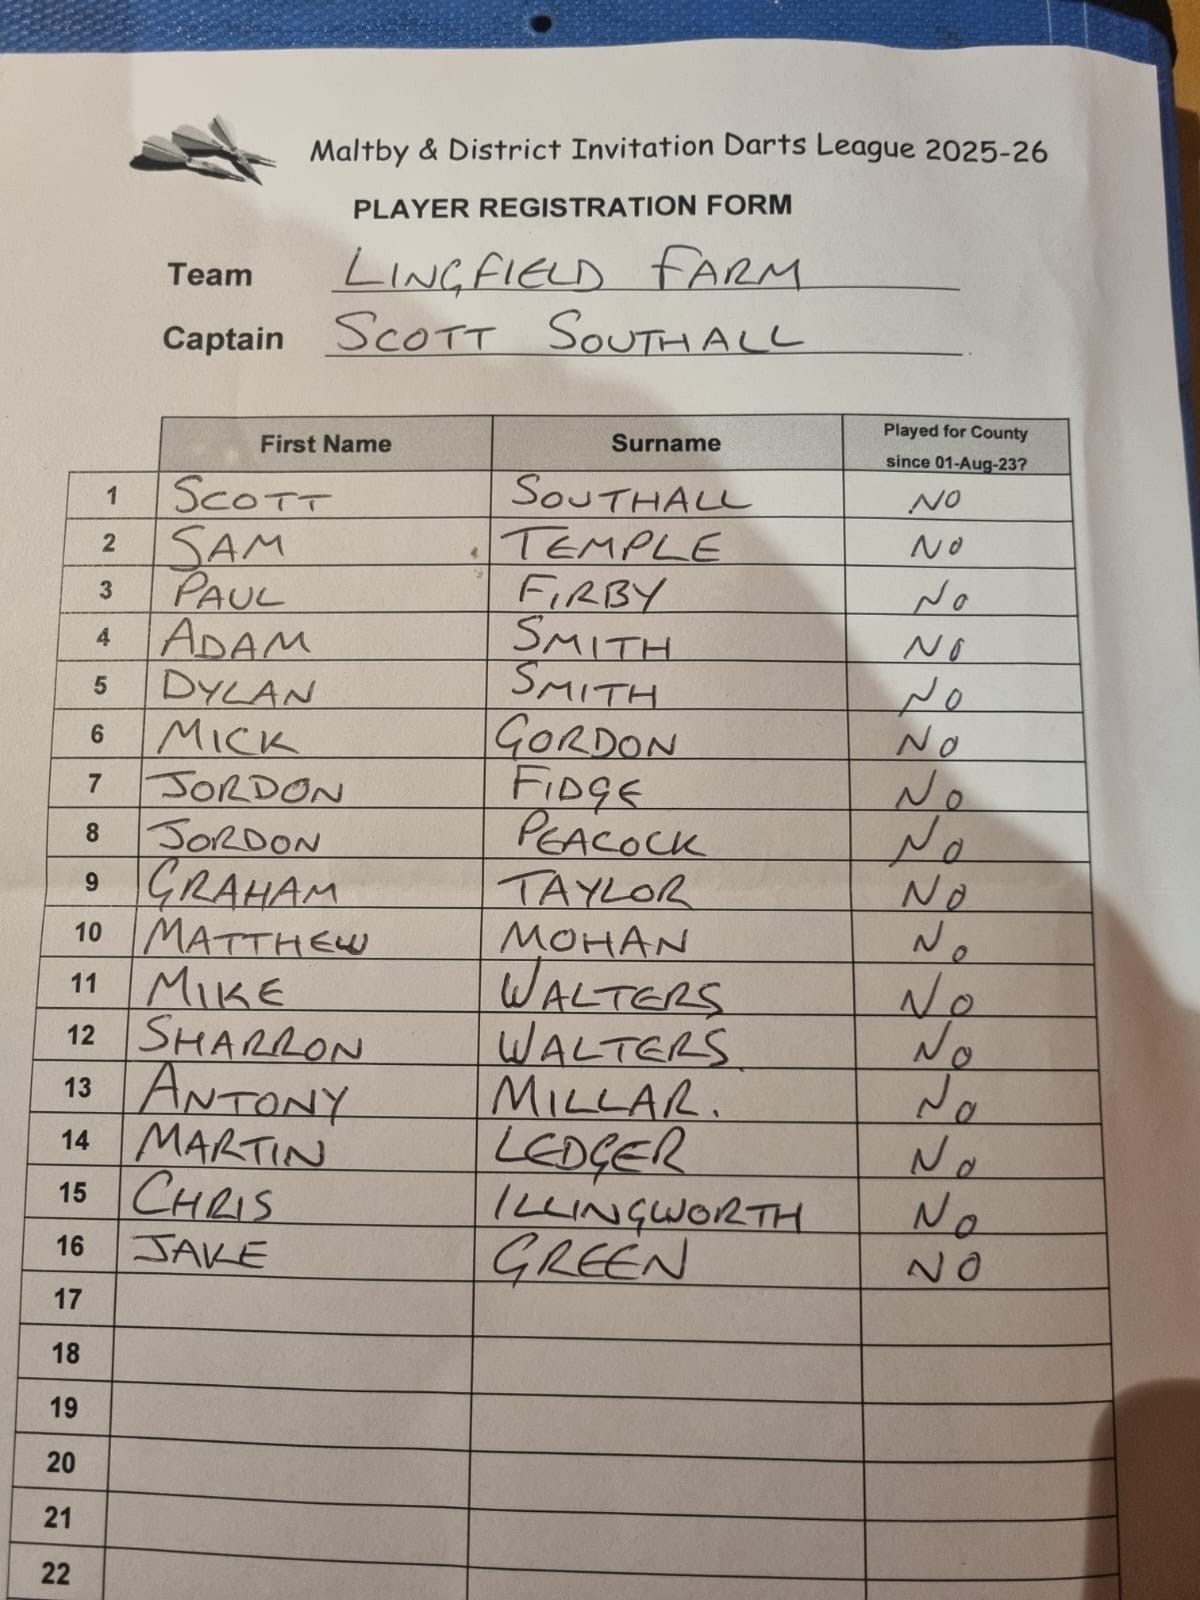 Maltby & District Invitation Darts League 2025-26
PLAYER REGISTRATION FORM
Team LINGFIELD FARM
Captain SCOTT SOUTHALL
First Name Surname Played for County since 01-Aug-23?
1 SCOTT SOUTHALL NO
2 SAM TEMPLE NO
3 PAUL FIRBY NO
4 ADAM SMITH NO
5 DYLAN SMITH NO
6 MICK GORDON NO
7 JORDON FIDGE NO
8 JORDON PEACOCK NO
9 GRAHAM TAYLOR NO
10 MATTHEW MOHAN NO
11 MIKE WALTERS NO
12 SHARRON WALTERS NO
13 ANTONY MILLAR. NO
14 MARTIN LEDGER NO
15 CHRIS ILLINGWORTH NO
16 JAKE GREEN NO
17
18
19
20
21
22